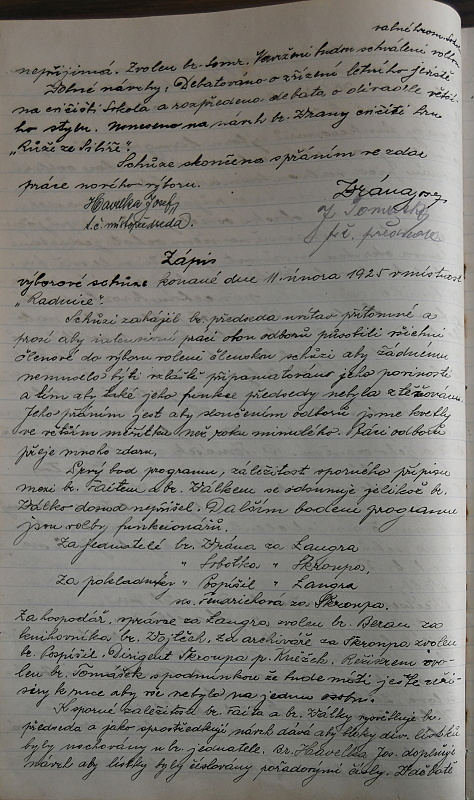 valné hrom.
nepřijímá. Zvolen br. Navržení budou schváleni volbou
Volné návrhy: Debatováno o zřízení letního jeviště
na cvičišti Sokola a rozpředena debata o divadle
ho stylu. na návrh br. Vrány
„Růže ze Sibiře".
Schůze skončena s přáním ve zdar
práce nového výboru.
Havelka Josef Vrána
t.č. místopředseda. J. Tomášek
t.č. předseda
Zápis
výborové schůze konané dne 11. února 1925 v místnosti
„Radnice".
Schůzi zahájil br. předseda uvítav přítomné a
prosí aby práci obou odborů působili všichni
členové do výboru volení členskou schůzí aby žádnému
nemuselo býti zvláště připamatováno jeho povinosti
a tím aby také jeho funkce předsedy nebyla ztěžována.
Jeho přáním jest aby sloučením odborů jsme
ve větším měřítku než roku minulého. Práci odborů
přeje mnoho zdaru.
Prvý bod programu, záležitost sporného přípisu
mezi br. Faitem a br. Válkem se odsunuje jelikož br.
Válko dosud nepřišel. Dalším bodem programu
jsou volby funkcionářů.
Za jednatelé br. Vrána za Langra
" Sobotka " Škroupa,
Za pokladníky " Pospíšil " Langra
za Škroupa.
Za hospodář. správce za Langra zvolen br. Beran za
knihovníka br. Vojtěch, za archiváře za Škroupa zvolen
br. Pospíšil. Dirigent Škroupa p. Kněžek. Režisérem zvo-
len br. Tomášek s podmínkou že bude míti ještě reži-
séry k ruce aby vše nebylo na jednu osobu.
K sporné záležitosti br. Faita a br. Války vysvětluje br.
předseda a jako zprostředkující návrh dává aby bloky div. lístků
byly uschovány u br. jednatele. Br. Havelka Jos. doplňuje
návrh aby lístky byly číslovány pořadovými čísly. Z debaty